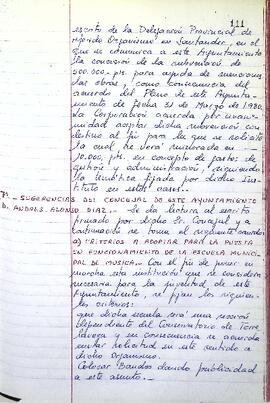 111
escrito de la Delegación Provincial de
dicho Organismo en Santander, en el
que se comunica a este Ayuntamiento
la concesión de la subvención de
500.000.- pts. para ayuda de mencionadas
las obras, como consecuencia del
acuerdo del Pleno de este Ayunta-
miento de fecha 31 de Marzo de 1980.
La Corporación acuerda por unani-
midad aceptar dicha subvención con
destino al fin para la que se solicitó
la cual se verá minorada en
10.000.- pts. en concepto de gastos de
gestión y administración, siguiendo
la temática fijada por dicho Ins-
tituto en estos casos.-
7º.- SUGERENCIAS DEL CONCEJAL DE ESTE AYUNTAMIENTO
D. ANDRES ALONSO DIAZ.- Se da lectura al escrito
firmado por dicho Sr. Concejal y a
continuación se toma el siguiente acuerdo:
a) CRITERIOS A ADOPTAR PARA LA PUESTA
EN FUNCIONAMIENTO DE LA ESCUELA MUNICI-
PAL DE MUSICA.- Con el fin de poner en
marcha esta institución que se considera
necesaria para la juventud de este
Ayuntamiento, se fijan los siguien-
tes criterios:
que dicha escuela sea una sección
dependiente del Conservatorio de Torre
lavega y en consecuencia se acuerda
enviar solicitud en este sentido a
dicho Organismo.
Colocar Bandos dando publicidad
a este asunto.-